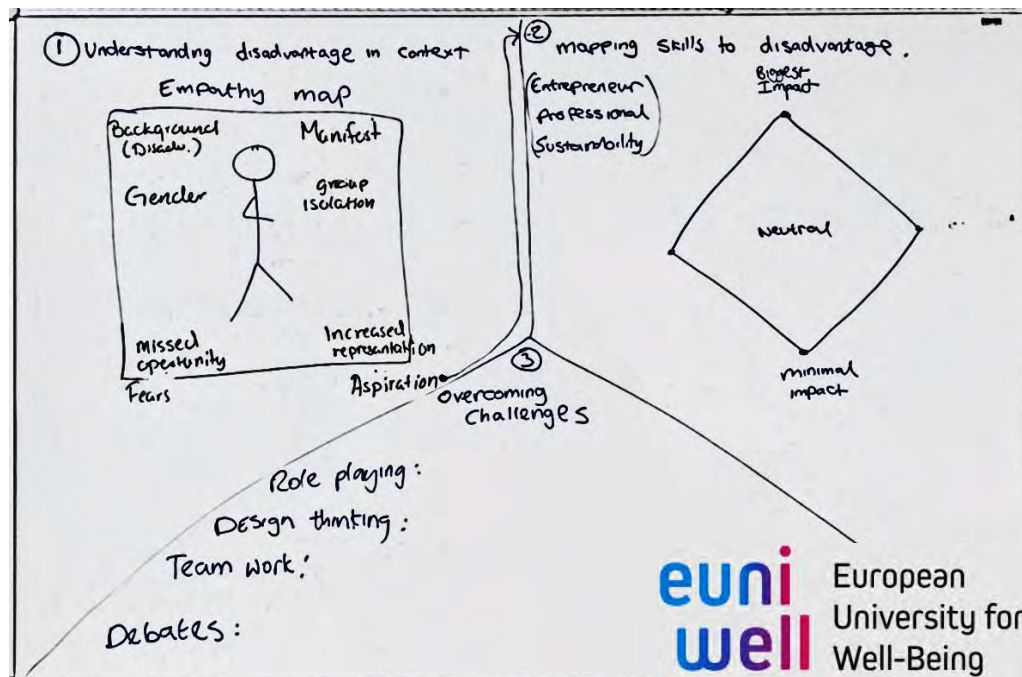 ① Understanding disadvantage in context
Empathy map
Background
(Disadv.)
Manifest
Gender
group
isolation
missed
opertunity
Increased
representation
Fears
Aspiration
② mapping skills to disadvantage.
(Entrepreneur
Professional
Sustainability)
Biggest
Impact
Neutral
minimal
impact
③
Overcoming
Challenges
Role playing:
Design thinking:
Team work:
Debates:
euni
well
European
University for
Well-Being